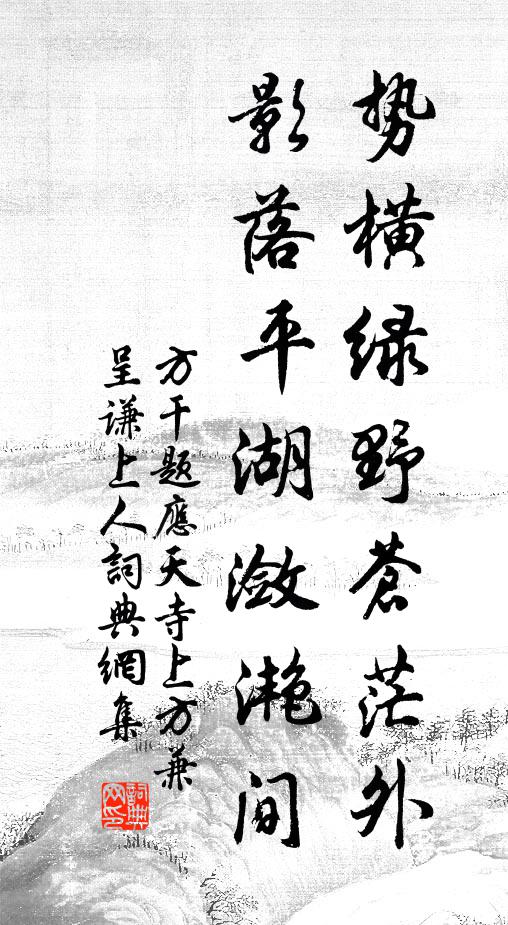 势横绿野蒼茫外
影落平湖潋滟間
方干题應天寺上方兼
呈谦上人詞典網集
詞典网印